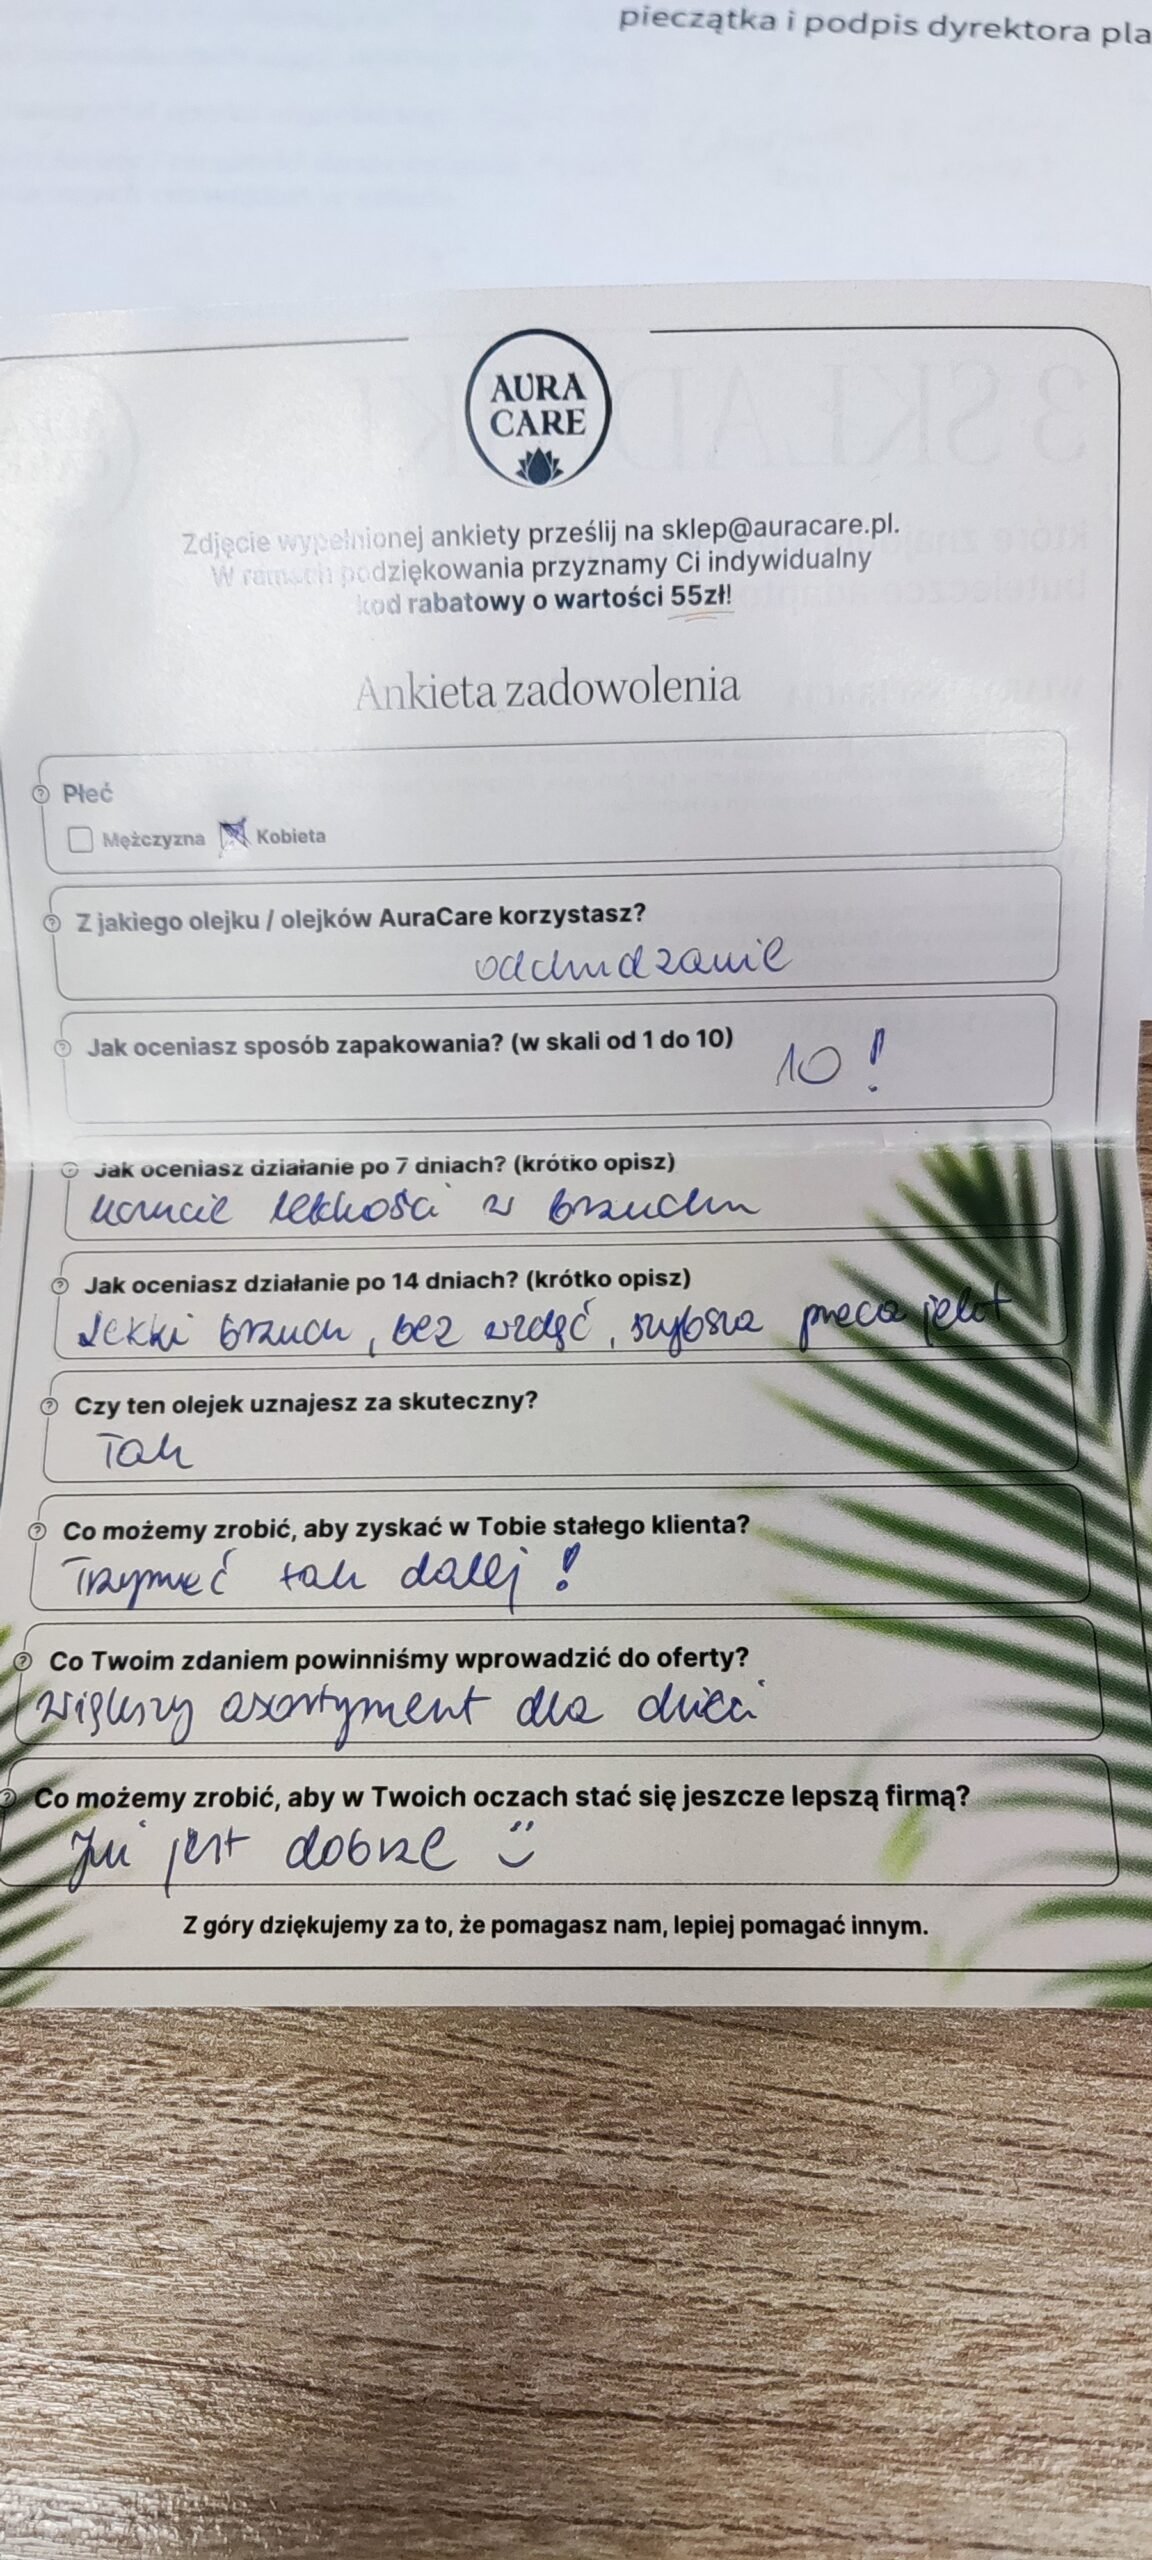 pieczątka i podpis dyrektora pla
AURA
CARE
Zdjęcie wypełnionej ankiety prześlij na sklep@auracare.pl.
W ramach podziękowania przyznamy Ci indywidualny
kod rabatowy o wartości 55zł!
Ankieta zadowolenia
Płeć
Mężczyzna Kobieta
Z jakiego olejku / olejków AuraCare korzystasz?
odchudzanie
Jak oceniasz sposób zapakowania? (w skali od 1 do 10)
10!
Jak oceniasz działanie po 7 dniach? (krótko opisz)
uczucie lekkości w brzuchu
Jak oceniasz działanie po 14 dniach? (krótko opisz)
lekki brzuch, bez wzdęć, szybsza praca jelit
Czy ten olejek uznajesz za skuteczny?
Tak
Co możemy zrobić, aby zyskać w Tobie stałego klienta?
Trzymać tak dalej!
Co Twoim zdaniem powinniśmy wprowadzić do oferty?
większy asortyment dla dzieci
Co możemy zrobić, aby w Twoich oczach stać się jeszcze lepszą firmą?
Już jest dobrze
Z góry dziękujemy za to, że pomagasz nam, lepiej pomagać innym.